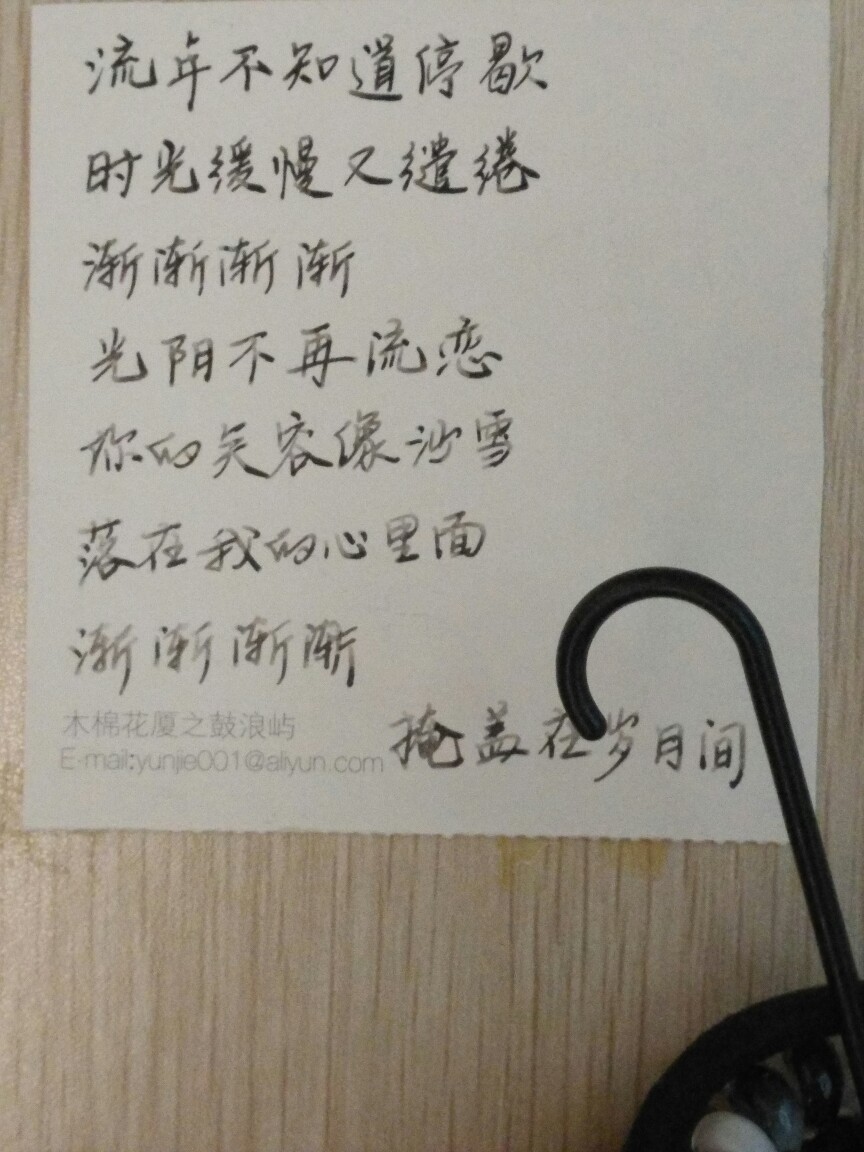 流年不知道停歇
时光缓慢又缱绻
渐渐渐渐
光阴不再流恋
你的笑容像沙雪
落在我的心里面
渐渐渐渐
掩盖在岁月间
木棉花厦之鼓浪屿
E-mail:yunjie001@aliyun.com